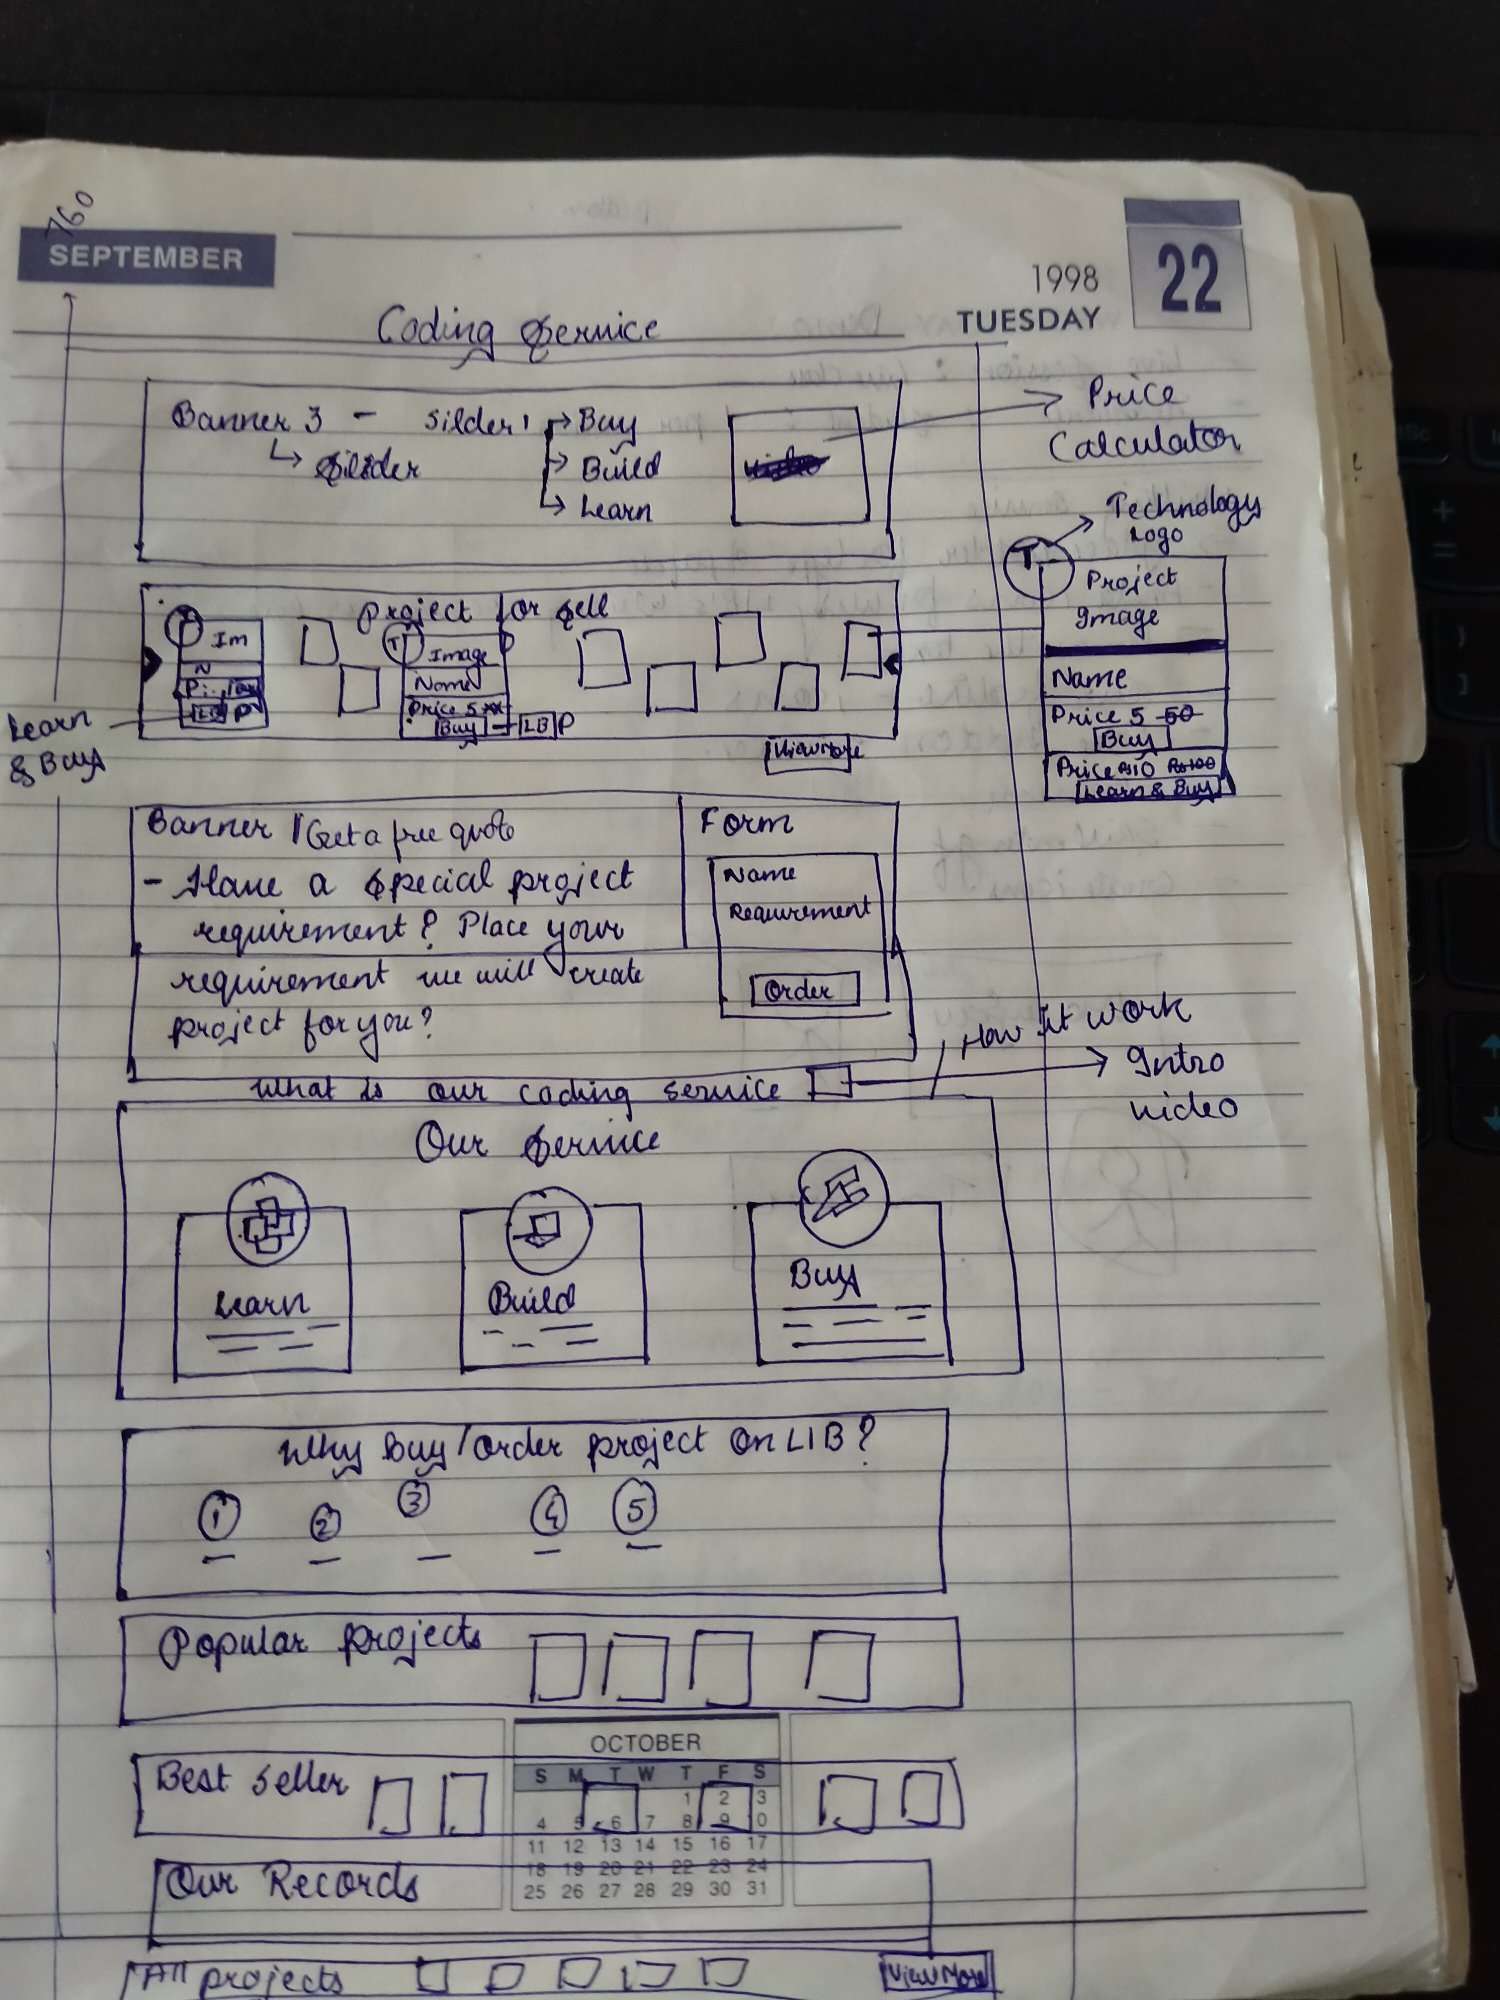 760
SEPTEMBER
1998
TUESDAY
22
Coding Service
Banner 3 - Silder
Silider
Buy
Build
Learn
Price
Calculator
Technology
Logo
T
Project
Image
Name
Price 5 50
Buy
Price Rs10 Rs100
Learn & Buy
Project for Sell
T
Im
N
LB P
T
Image
Name
Price 5
Buy - LB P
View More
Learn
& Buy
Banner / Get a free quote
- Have a special project
requirement? Place your
requirement we will create
project for you?
Form
Name
Requirement
Order
How It work
What is our coding service
Intro
video
Our Service
Learn
Build
Buy
Why buy/order project on LIB?
1 2 3 4 5
Popular projects
OCTOBER
Best Seller
S M T W T F S
1 2 3
4 5 6 7 8 9 0
11 12 13 14 15 16 17
18 19 20 21 22 23 24
25 26 27 28 29 30 31
Our Records
All projects
View More